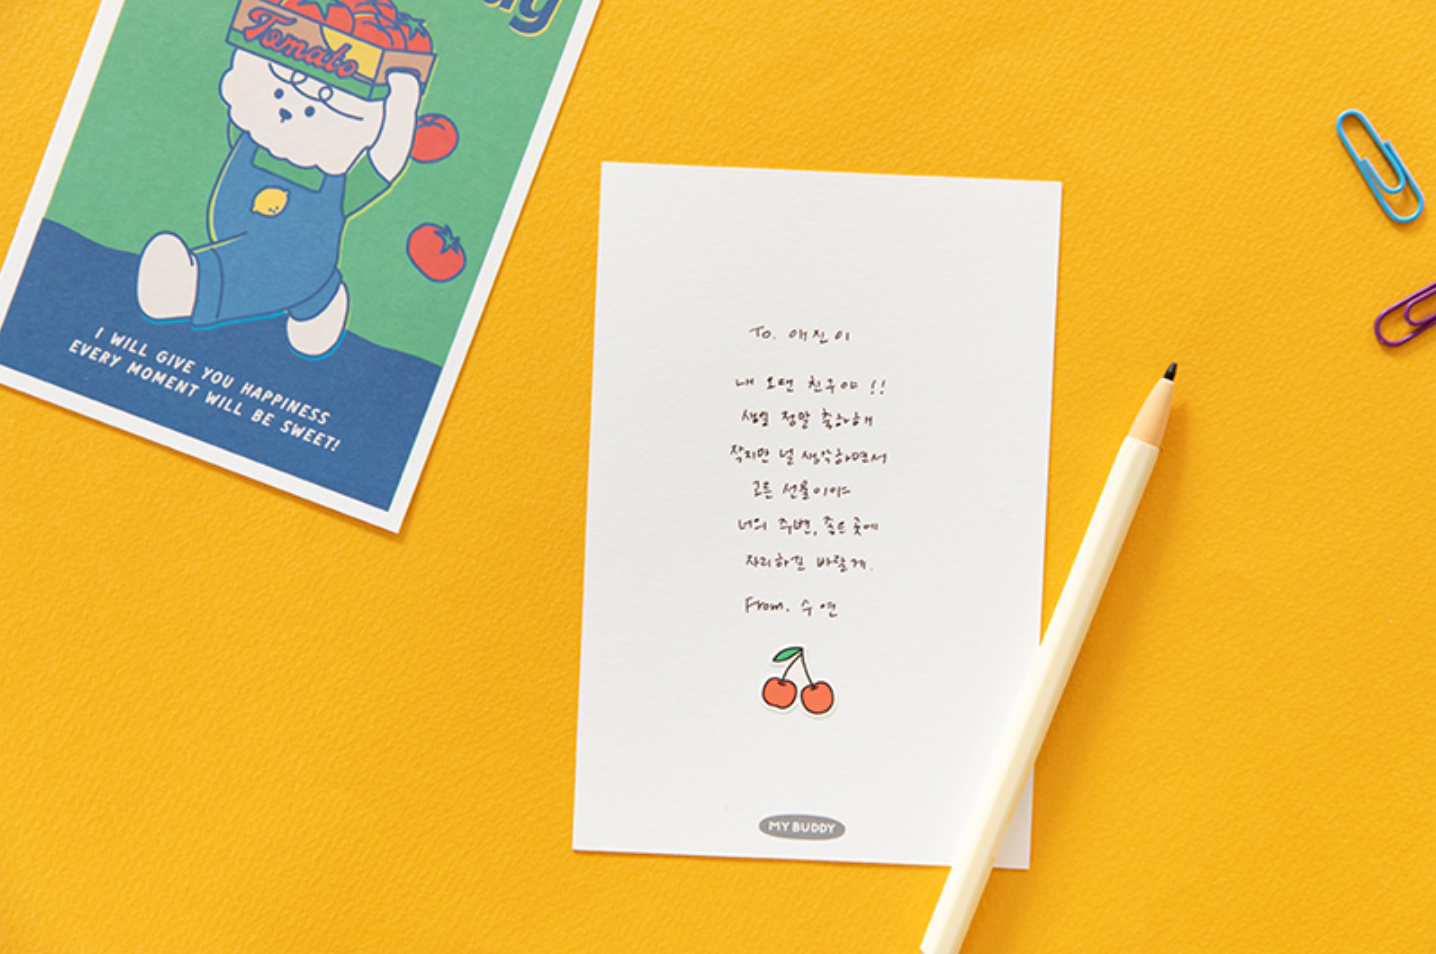 Tomato
I WILL GIVE YOU HAPPINESS
EVERY MOMENT WILL BE SWEET!
To. 애진이
내 오랜 친구야 !!
생일 정말 축하해
작지만 널 생각하면서
고른 선물이야
너의 주변, 좋은 곳에
자리하길 바랄게.
From. 수연
MY BUDDY